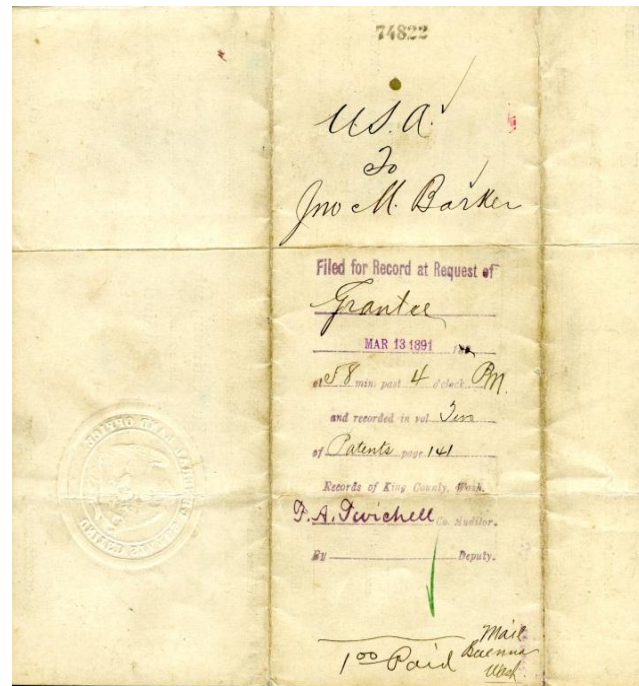 74822
U.S.A.
To
Jno M. Barker
Filed for Record at Request of
Grantee
MAR 13 1891
at 58 min. past 4 o'clock PM.
and recorded in vol
of Patents page 141
Records of King County, Wash.
T. A. Twichell Co. Auditor.
By Deputy.
1 00 Paid
Mail
Buenna
Wash.